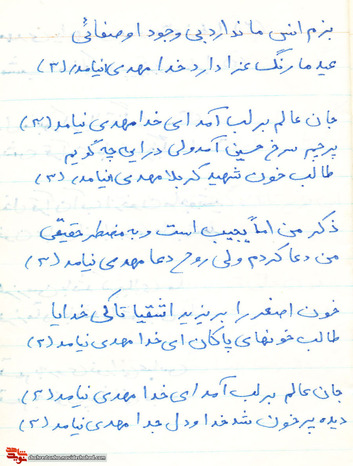 بزم انس ما ندارد بی وجود او صفائی
عید ما رنگ عزا دارد خدا مهدی نیامد (۳)
جان عالم بر لب آمد ای خدا مهدی نیامد (۲)
پرچم سرخ حسینی آمد ولی در این چه گویم
طالب خون شهید کربلا مهدی نیامد (۳)
ذکر من اماً یجیب است و به مضطر حقیقی
من دعا کردم ولی روح دعا مهدی نیامد (۲)
خون اصغر را بریزید اشقیا تا کی خدایا
طالب خونهای پاکان ای خدا مهدی نیامد (۲)
جان عالم بر لب آمد ای خدا مهدی نیامد (۲)
دیده پر خون شد خدا و دل جدا مهدی نیامد (۲)
shohadanha.navideshahed.com